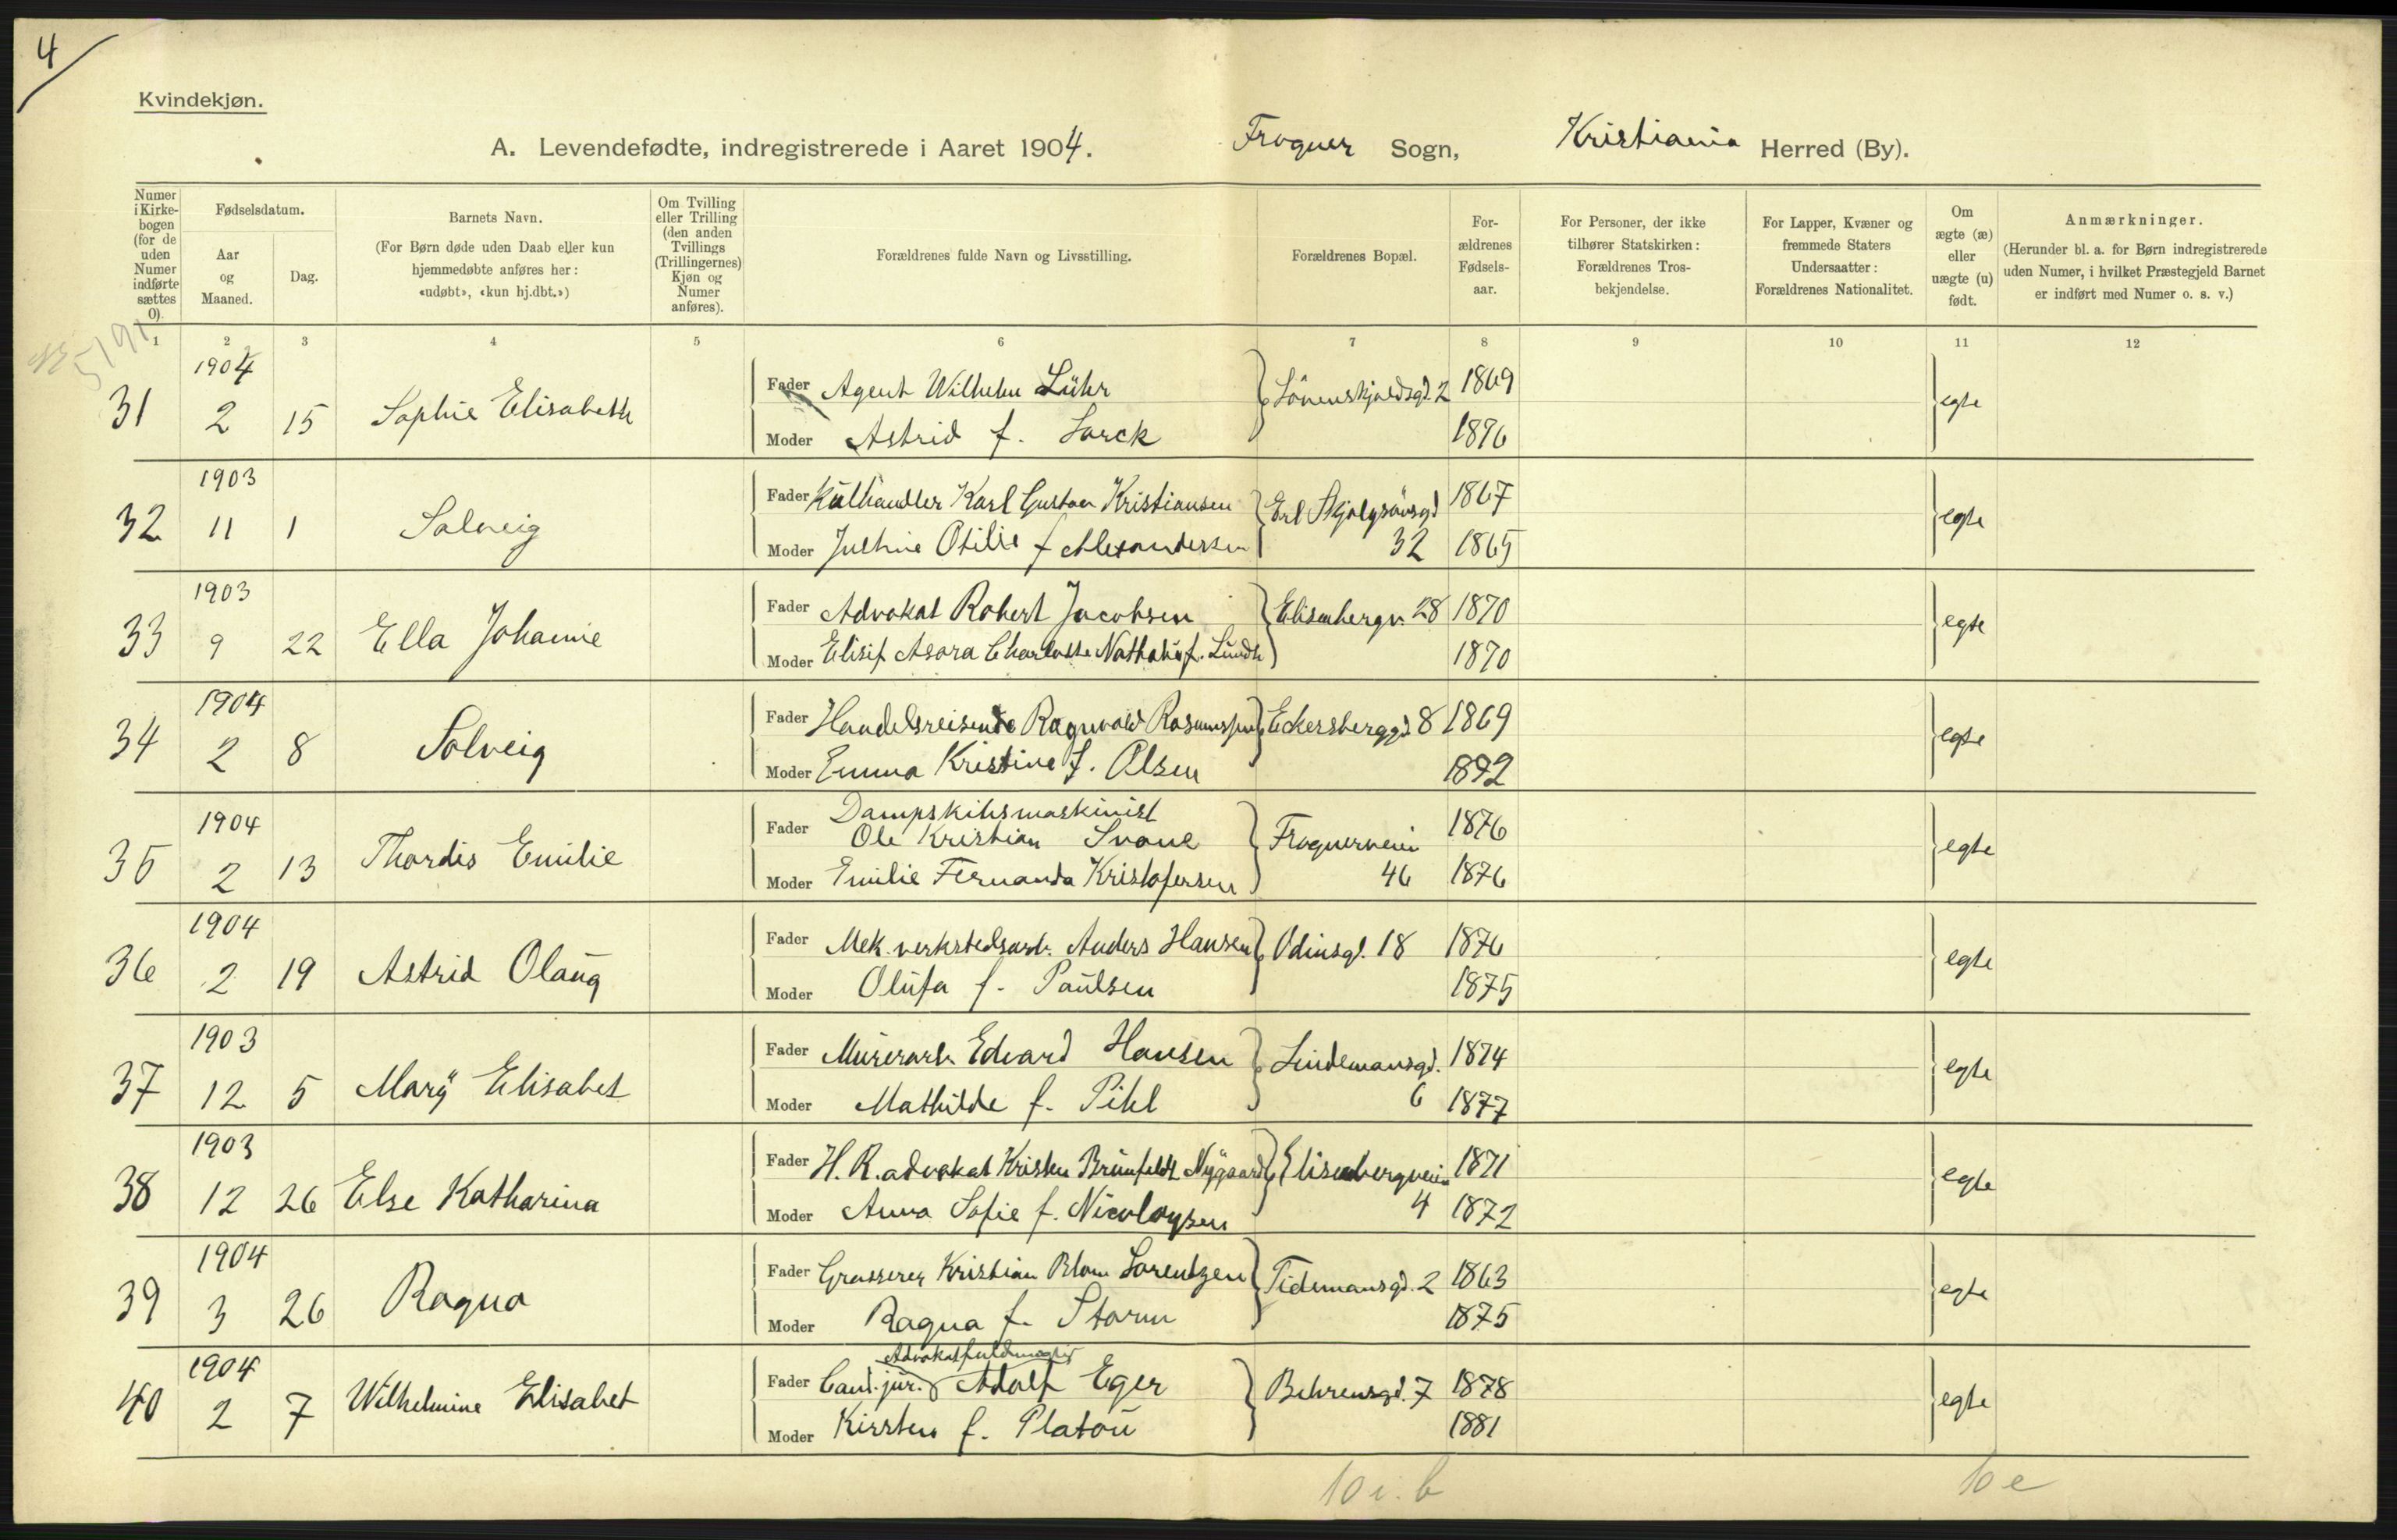 4
Kvindekjøn.
A. Levendefødte, indregistrerede i Aaret 1904. Frogner Sogn, Kristiania Herred (By).
Numer i Kirkebogen (for de uden Numer indførte sættes 0).
Fødselsdatum.
Aar og Maaned.
Dag.
Barnets Navn.
(For Børn døde uden Daab eller kun hjemmedøbte anføres her: «udøbt», «kun hj.dbt.»)
Om Tvilling eller Trilling (den anden Tvillings (Trillingernes) Kjøn og Numer anføres).
Forældrenes fulde Navn og Livsstilling.
Forældrenes Bopæl.
Forældrenes Fødselsaar.
For Personer, der ikke tilhører Statskirken: Forældrenes Trosbekjendelse.
For Lapper, Kvæner og fremmede Staters Undersaatter: Forældrenes Nationalitet.
Om ægte (æ) eller uægte (u) født.
Anmærkninger.
(Herunder bl. a. for Børn indregistrerede uden Numer, i hvilket Præstegjeld Barnet er indført med Numer o. s. v.)
1 2 3 4 5 6 7 8 9 10 11 12
5191
1904
31 2 15 Sophie Elisabeth Fader Agent Wilhelm Lühr Lövenskjoldsgd. 2 1869 egte
Moder Astrid f. Larck 1876
1903
32 11 1 Solveig Fader Kulhandler Karl Gustav Kristiansen Erl Skjalgsönsgd 1867 egte
Moder Julhine Otilie f Alexandersen 32 1865
1903
33 9 22 Ella Johanne Fader Advokat Robert Jacobsen Elisenbergv. 28 1870 egte
Moder Elisif Asora Charlotte Nathalie f. Lundh 1870
1904
34 2 8 Solveig Fader Handelsreisende Ragnvald Rasmussen Eckersberggd. 8 1869 egte
Moder Emma Kristine f. Olsen 1872
1904
Dampskibsmaskinist
35 2 13 Thordis Emilie Fader Ole Kristian Svane Frognerveien 1876 egte
Moder Emilie Fernanda Kristofersen 46 1876
1904
36 2 19 Astrid Olaug Fader Mek. verkstedsarb. Anders Hansen Odinsgd. 18 1876 egte
Moder Olufa f. Paulsen 1875
1903
37 12 5 Mary Elisabet Fader Murerarb Edvard Hansen Lindemansgd. 1874 egte
Moder Mathilde f. Pihl 6 1877
1903
38 12 26 Else Katharina Fader H. R. advokat Kristen Brunfeldt Nygaard Elisenbergveien 1871 egte
Moder Anna Sofie f. Nicolaysen 4 1872
1904
39 3 26 Ragna Fader Grosserer Kristian Blom Lorentzen Tidemansgd. 2 1863 egte
Moder Ragna f. Storm 1875
1904
Advokatfuldmægtig
40 2 7 Wilhelmine Elisabet Fader Cand. jur. Adolf Eger Behrensgd. 7 1878 egte
Moder Kirsten f. Platou 1881
10 i. b 10 e